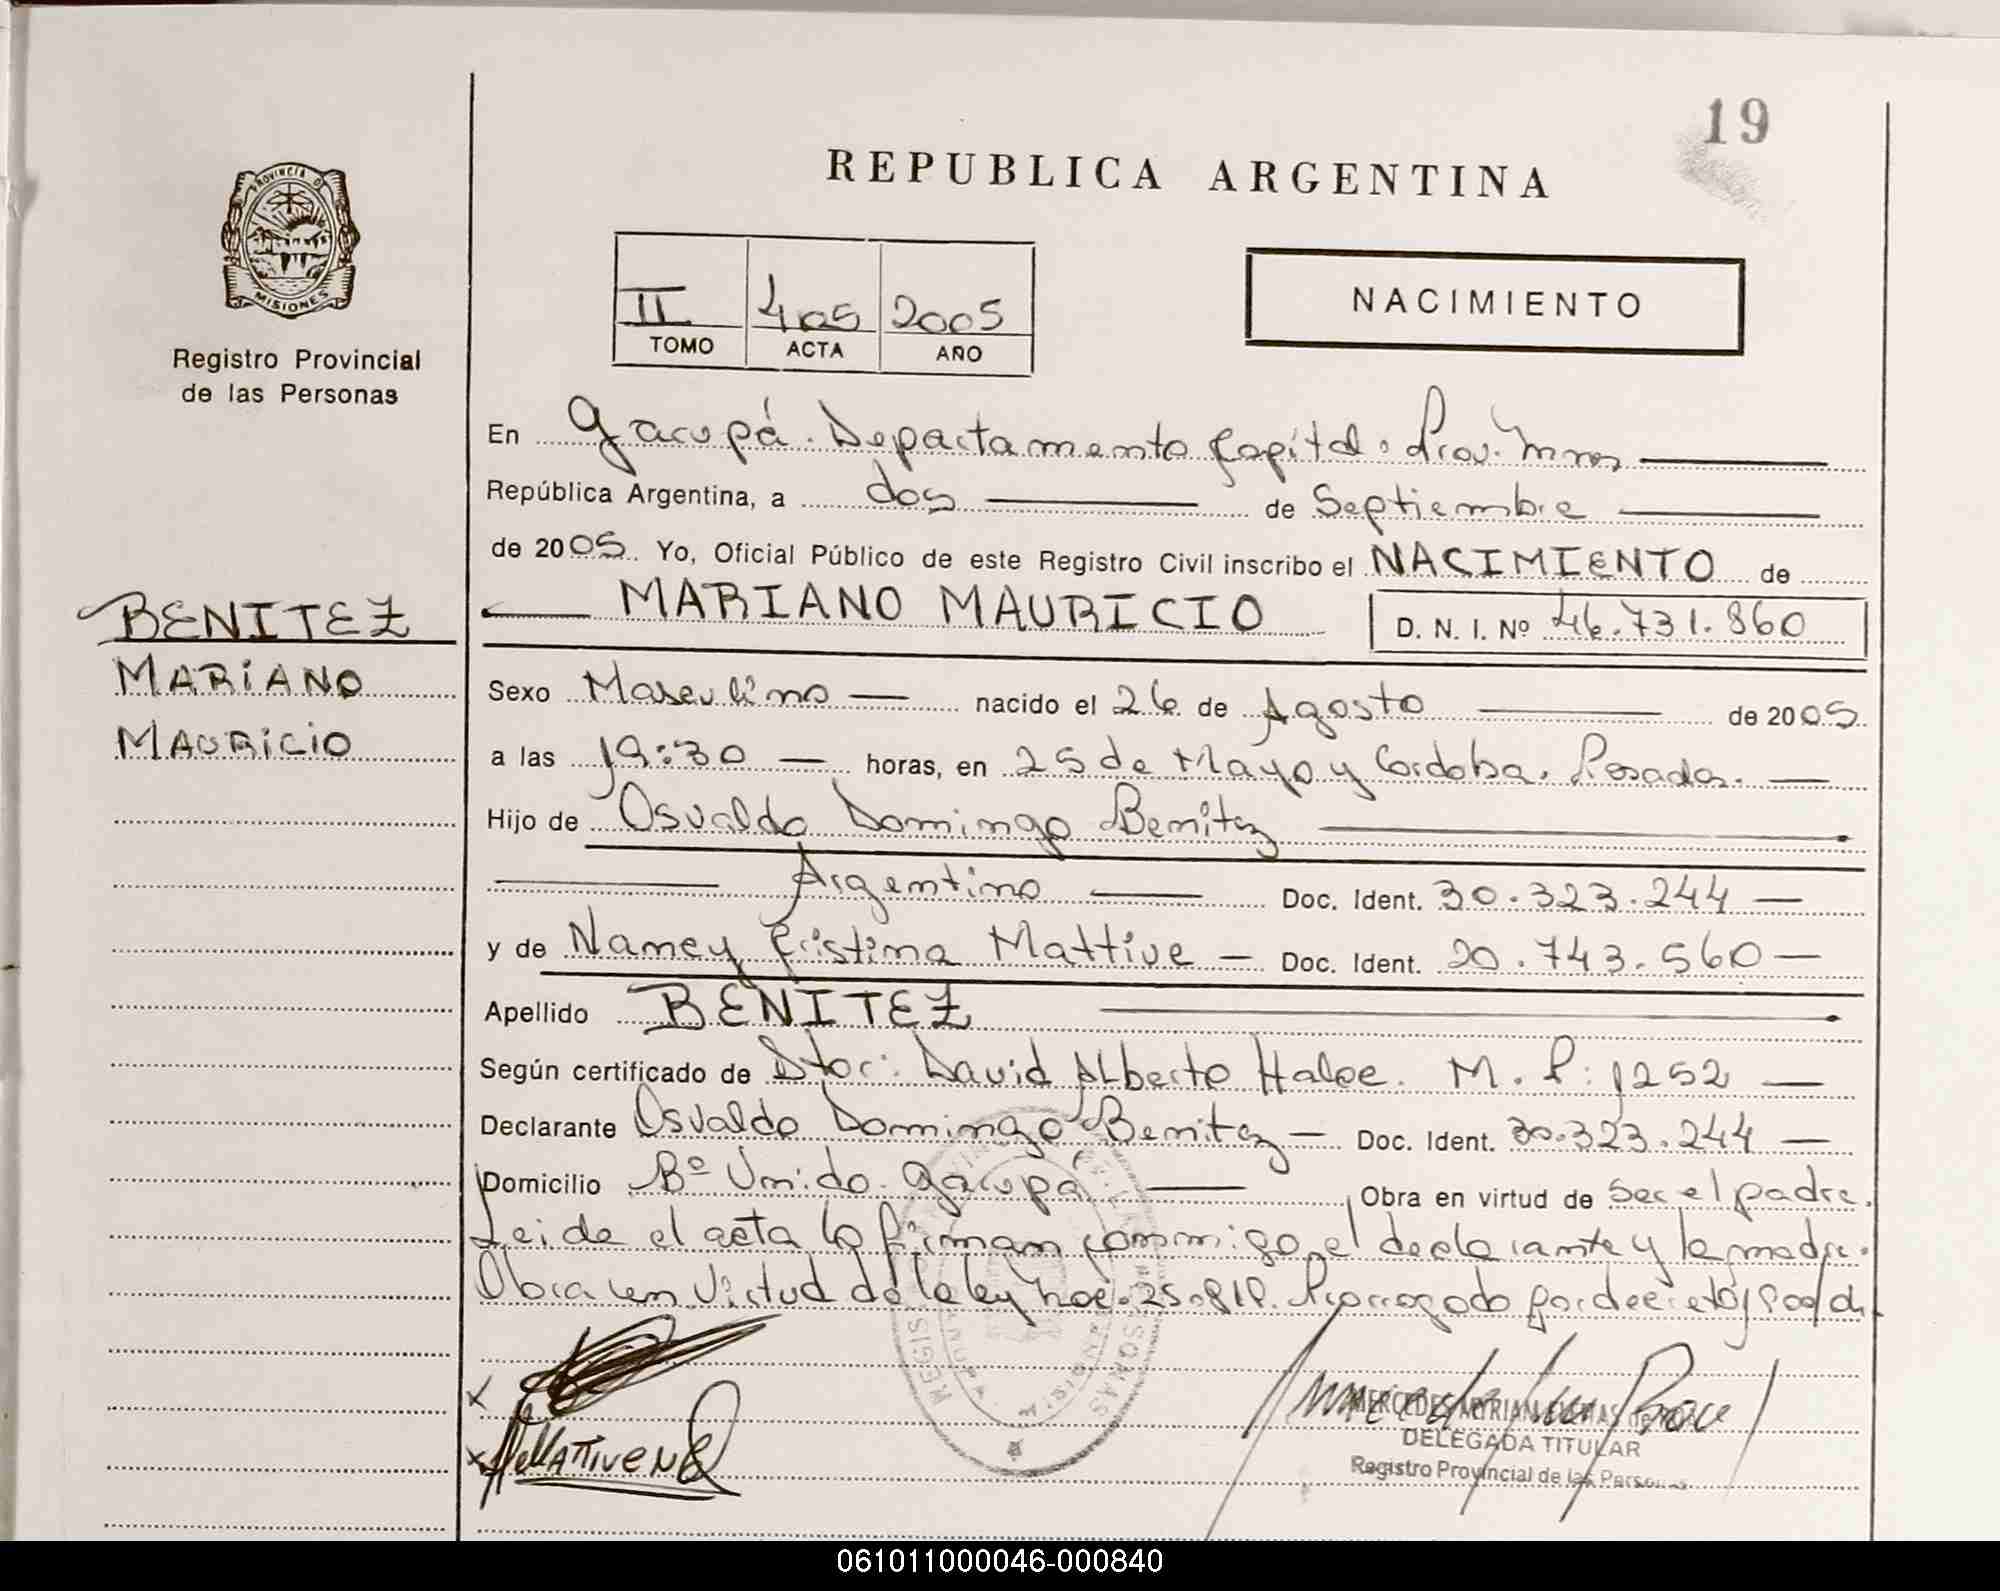 19
REPUBLICA ARGENTINA
PROVINCIA D
MISIONES
Registro Provincial
de las Personas
II 405 2005
TOMO ACTA AÑO
NACIMIENTO
En Garupá. Departamento Capital. Prov. Mnes
República Argentina, a dos de Septiembre
de 2005. Yo, Oficial Público de este Registro Civil inscribo el NACIMIENTO de
MARIANO MAURICIO D. N. I. Nº 46.731.860
BENITEZ
MARIANO
MAURICIO
Sexo Masculino nacido el 26 de Agosto de 2005
a las 19:30 horas, en 25 de Mayo y Cordoba. Posadas.
Hijo de Osvaldo Domingo Benitez
Argentino Doc. Ident. 30.323.244
y de Nancy Cristina Mattive Doc. Ident. 20.743.560
Apellido BENITEZ
Según certificado de Dtor: David Alberto Haloe. M. P: 1252
Declarante Osvaldo Domingo Benitez Doc. Ident. 30.323.244
Domicilio Bº Unido. Garupá Obra en virtud de ser el padre.
Leida el acta la firman conmigo el declarante y la madre.
Obra en virtud de la ley nro. 25.819. Prorrogado por decreto
DELEGADA TITULAR
Registro Provincial de las Personas
061011000046-000840